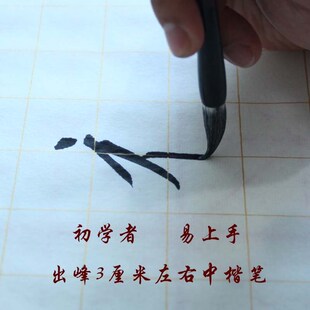 初学者 易上手
出峰3厘米左右中楷笔